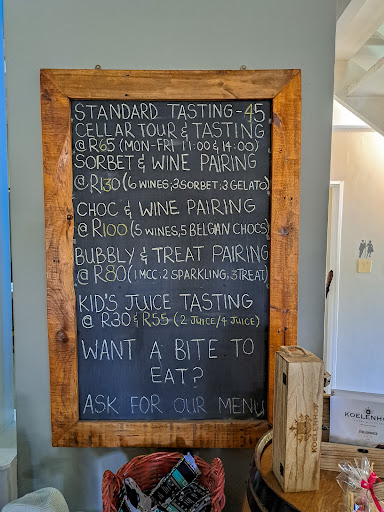 STANDARD TASTING - 45
CELLAR TOUR & TASTING
@ R65 (MON-FRI 11:00 & 14:00)
SORBET & WINE PAIRING
@ R130 (6 WINES; 3 SORBET; 3 GELATO)
CHOC & WINE PAIRING
@ R100 (5 WINES; 5 BELGIAN CHOCS)
BUBBLY & TREAT PAIRING
@ R80 (1 MCC; 2 SPARKLING; 3 TREAT)
KID'S JUICE TASTING
@ R30 & R55 (2 JUICE/4 JUICE)
WANT A BITE TO
EAT?
ASK FOR OUR MENU
KOELENHOF
KOELENHO